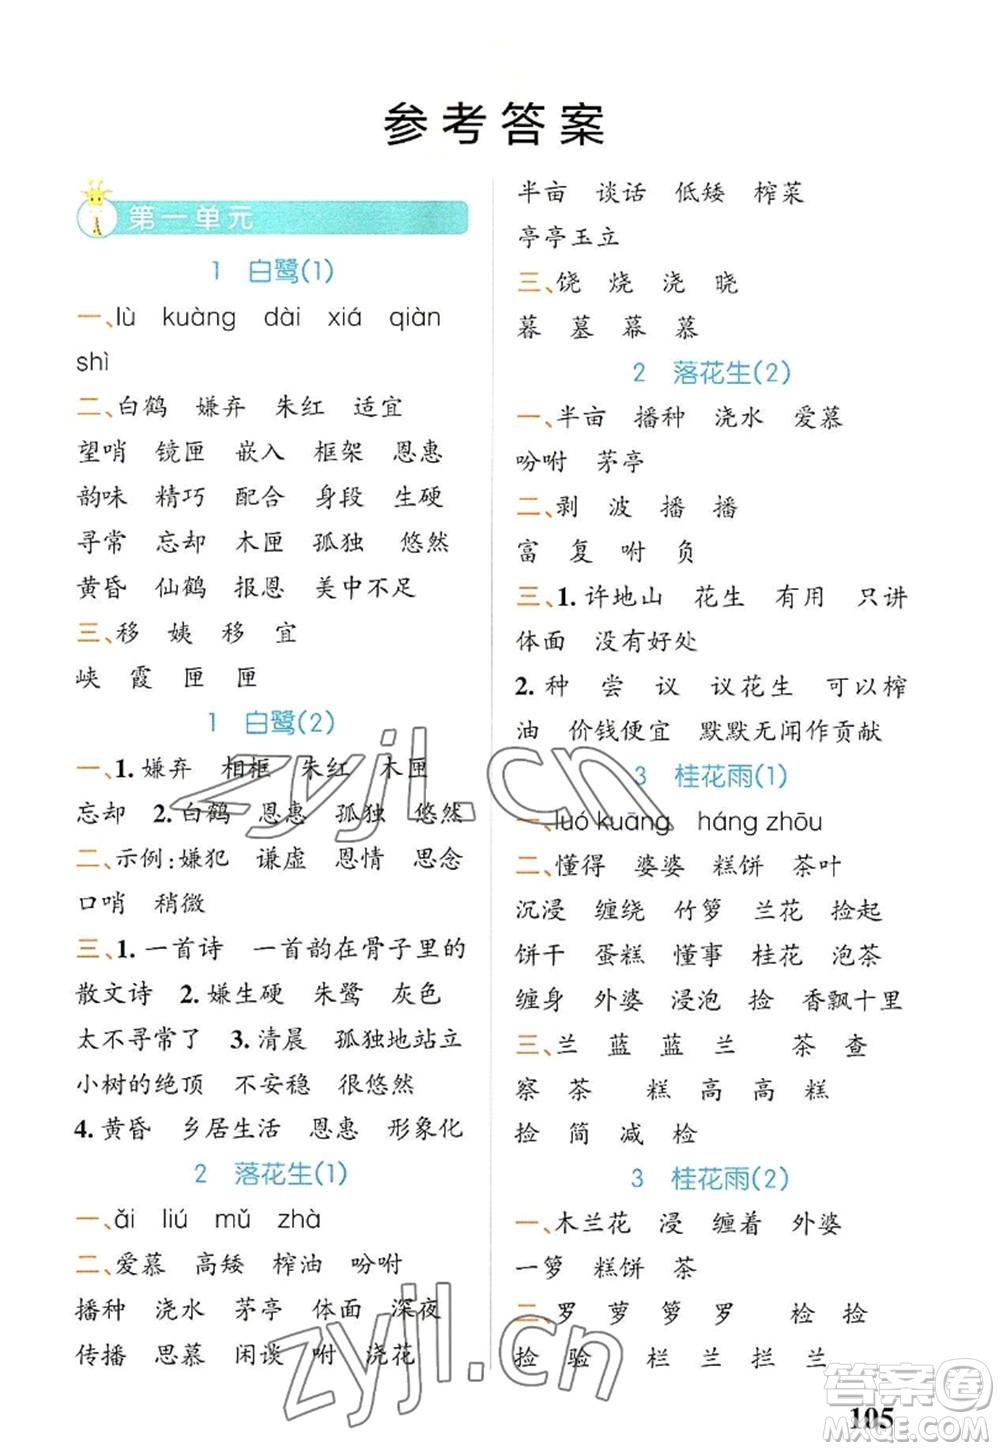 参考答案
第一单元
1 白鹭(1)
一、lù kuàng dài xiá qiàn
shì
二、白鹤 嫌弃 朱红 适宜
望哨 镜匣 嵌入 框架 恩惠
韵味 精巧 配合 身段 生硬
寻常 忘却 木匣 孤独 悠然
黄昏 仙鹤 报恩 美中不足
三、移 姨 移 宜
峡 霞 匣 匣
1 白鹭(2)
一、1. 嫌弃 相框 朱红 木匣
忘却 2. 白鹤 恩惠 孤独 悠然
二、示例:嫌犯 谦虚 恩情 思念
口哨 稍微
三、1. 一首诗 一首韵在骨子里的
散文诗 2. 嫌生硬 朱鹭 灰色
太不寻常了 3. 清晨 孤独地站立
小树的绝顶 不安稳 很悠然
4. 黄昏 乡居生活 恩惠 形象化
2 落花生(1)
一、ǎi liú mǔ zhà
二、爱慕 高矮 榨油 吩咐
播种 浇水 茅亭 体面 深夜
传播 思慕 闲谈 咐 浇花
半亩 谈话 低矮 榨菜
亭亭玉立
三、饶 烧 浇 晓
暮 墓 幕 慕
2 落花生(2)
一、半亩 播种 浇水 爱慕
吩咐 茅亭
二、剥 波 播 播
富 复 咐 负
三、1. 许地山 花生 有用 只讲
体面 没有好处
2. 种 尝 议 议花生 可以榨
油 价钱便宜 默默无闻作贡献
3 桂花雨(1)
一、luó kuāng háng zhōu
二、懂得 婆婆 糕饼 茶叶
沉浸 缠绕 竹箩 兰花 捡起
饼干 蛋糕 懂事 桂花 泡茶
缠身 外婆 浸泡 捡 香飘十里
三、兰 蓝 蓝 兰 茶 查
察 茶 糕 高 高 糕
捡 简 减 检
3 桂花雨(2)
一、木兰花 浸 缠着 外婆
一箩 糕饼 茶
二、罗 萝 箩 罗 检 捡
捡 验 栏 兰 拦 兰
105
zyjl.cn
zyjl.cn
答案圈
MXQE.COM